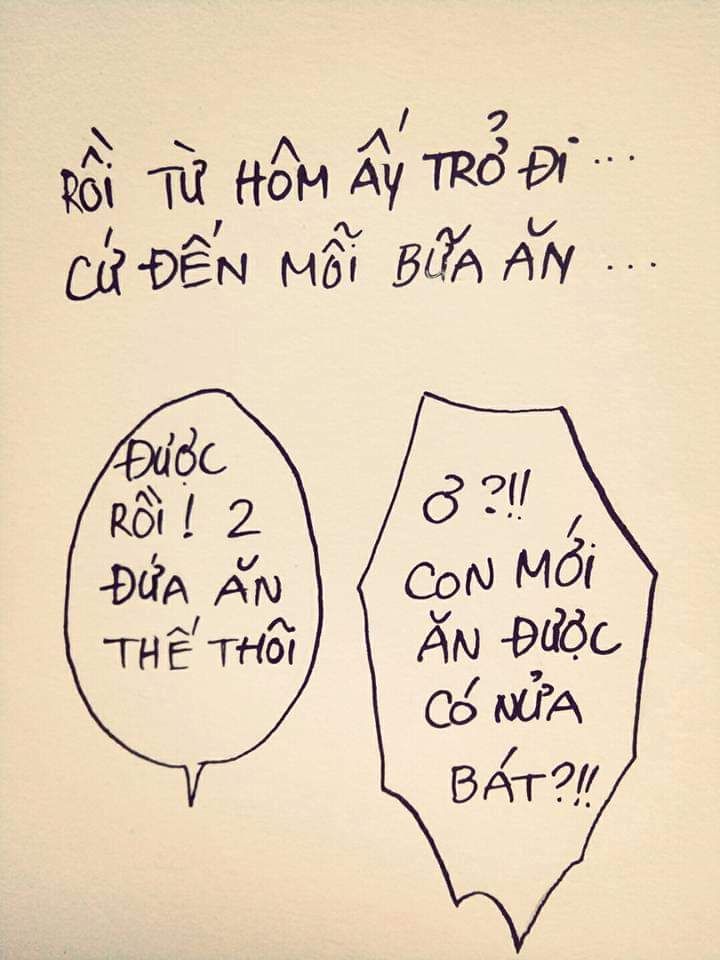 RỒI TỪ HÔM ẤY TRỞ ĐI...
CỨ ĐẾN MỖI BỮA ĂN ...
ĐƯỢC
RỒI! 2
ĐỨA ĂN
THẾ THÔI
Ơ ?!!
CON MỚI
ĂN ĐƯỢC
CÓ NỬA
BÁT?!!